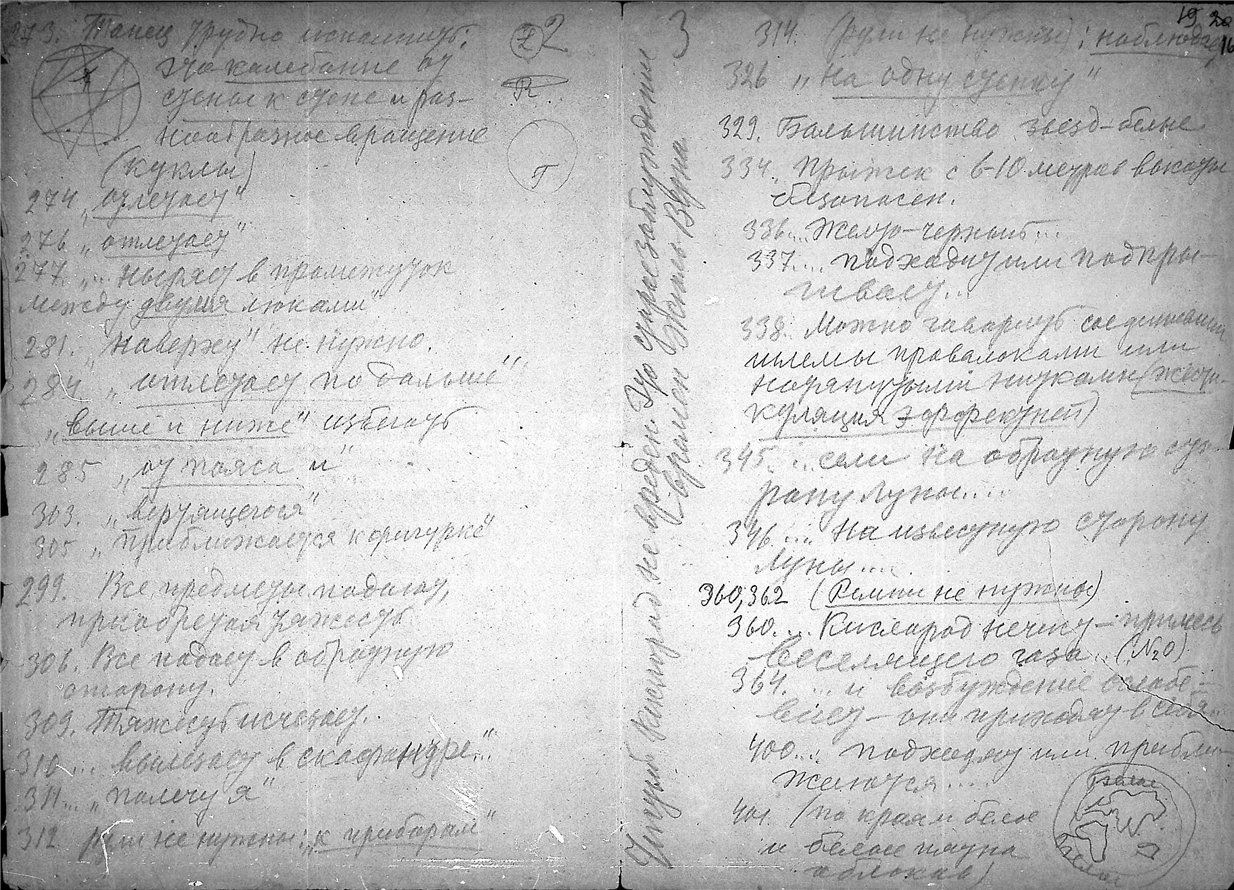 273. Танец трудно исполнить:
это колебание от
стены к стене и раз-
нообразное вращение
(куклы)
274 „отлетает"
276 „отлетает"
277. „... ныряет в промежуток
между двумя люками"
281. „наверху" не нужно.
284 „отлетает подальше"
„выше и ниже" избегать
285 „от пояса и"
303. „вертящегося"
305 „приближается к фигурке"
299. Все предметы падают,
приобретая тяжесть
306. Все падает в обратную
сторону.
309. Тяжесть исчезает.
316 ... вылезает в скафандре..."
311... „полечу я"
312 рули не нужны: „к приборам"
22
R
Г
3
Чистый кислород не вреден. Это старое заблуждение
- врали Жюль Верна
19 20
16
314. (рули не нужны):
326 „На одну стенку"
329. Большинство звезд - белые
334. Прыжок с 6-10 метров высоты
безопасен.
336... Желто-черный...
337.... подходит или подпры-
гивает...
338. Можно говорить соединивши
шлемы проволоками или
натянутыми нитками (жести-
куляция эффектней)
345. ... сели на обратную сто-
рону луны....
346 .... На известную сторону
луны....
360, 362 (Рампы не нужны)
360. ... Кислород нечист - примесь
веселящего газа.. (N₂O)
364. ... и возбуждение ослабе-
вает - они приходят в себя...
400... подходят или прибли-
жаются....
401. (по краям белое
и белые пятна
облаков)
Белое
Белое